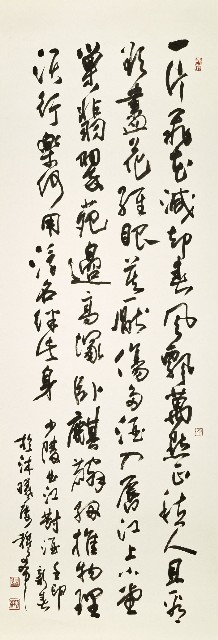 一片飛花減却春風飄萬點正愁人且看
欲盡花經眼莫厭傷多酒入唇江上小堂
巢翡翠苑邊高塚臥麒麟細推物理
須行樂何用浮名絆此身
少陵曲江對酒 新春